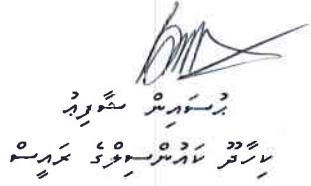 ޙުސައިން ޝާފިޢު
ކިހާދޫ ކައުންސިލްގެ ރައީސް